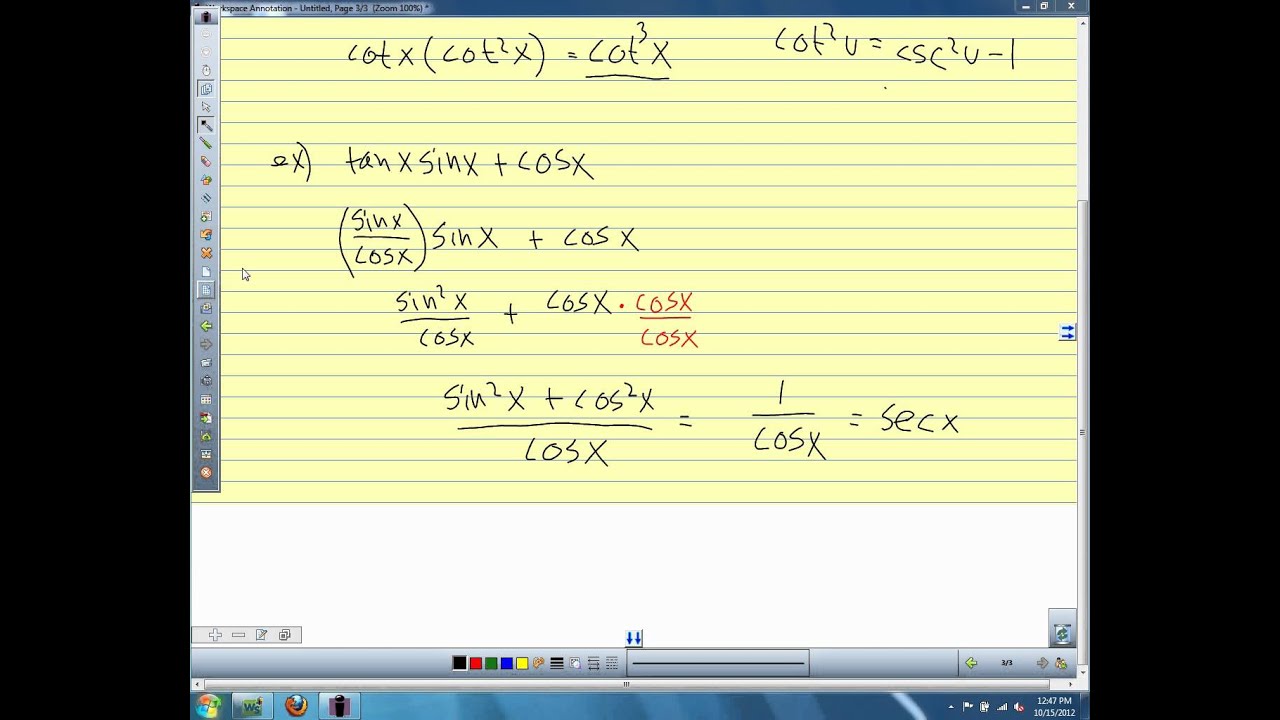 Workspace Annotation - Untitled, Page 3/3 (Zoom 100%) *
cot x (cot²x) = cot³x
cot²u = csc²u - 1
ex) tan x sin x + cos x
(sin x / cos x) sin x + cos x
sin²x / cos x + cos x · cos x / cos x
sin²x + cos²x / cos x = 1 / cos x = sec x
3/3
12:47 PM
10/15/2012